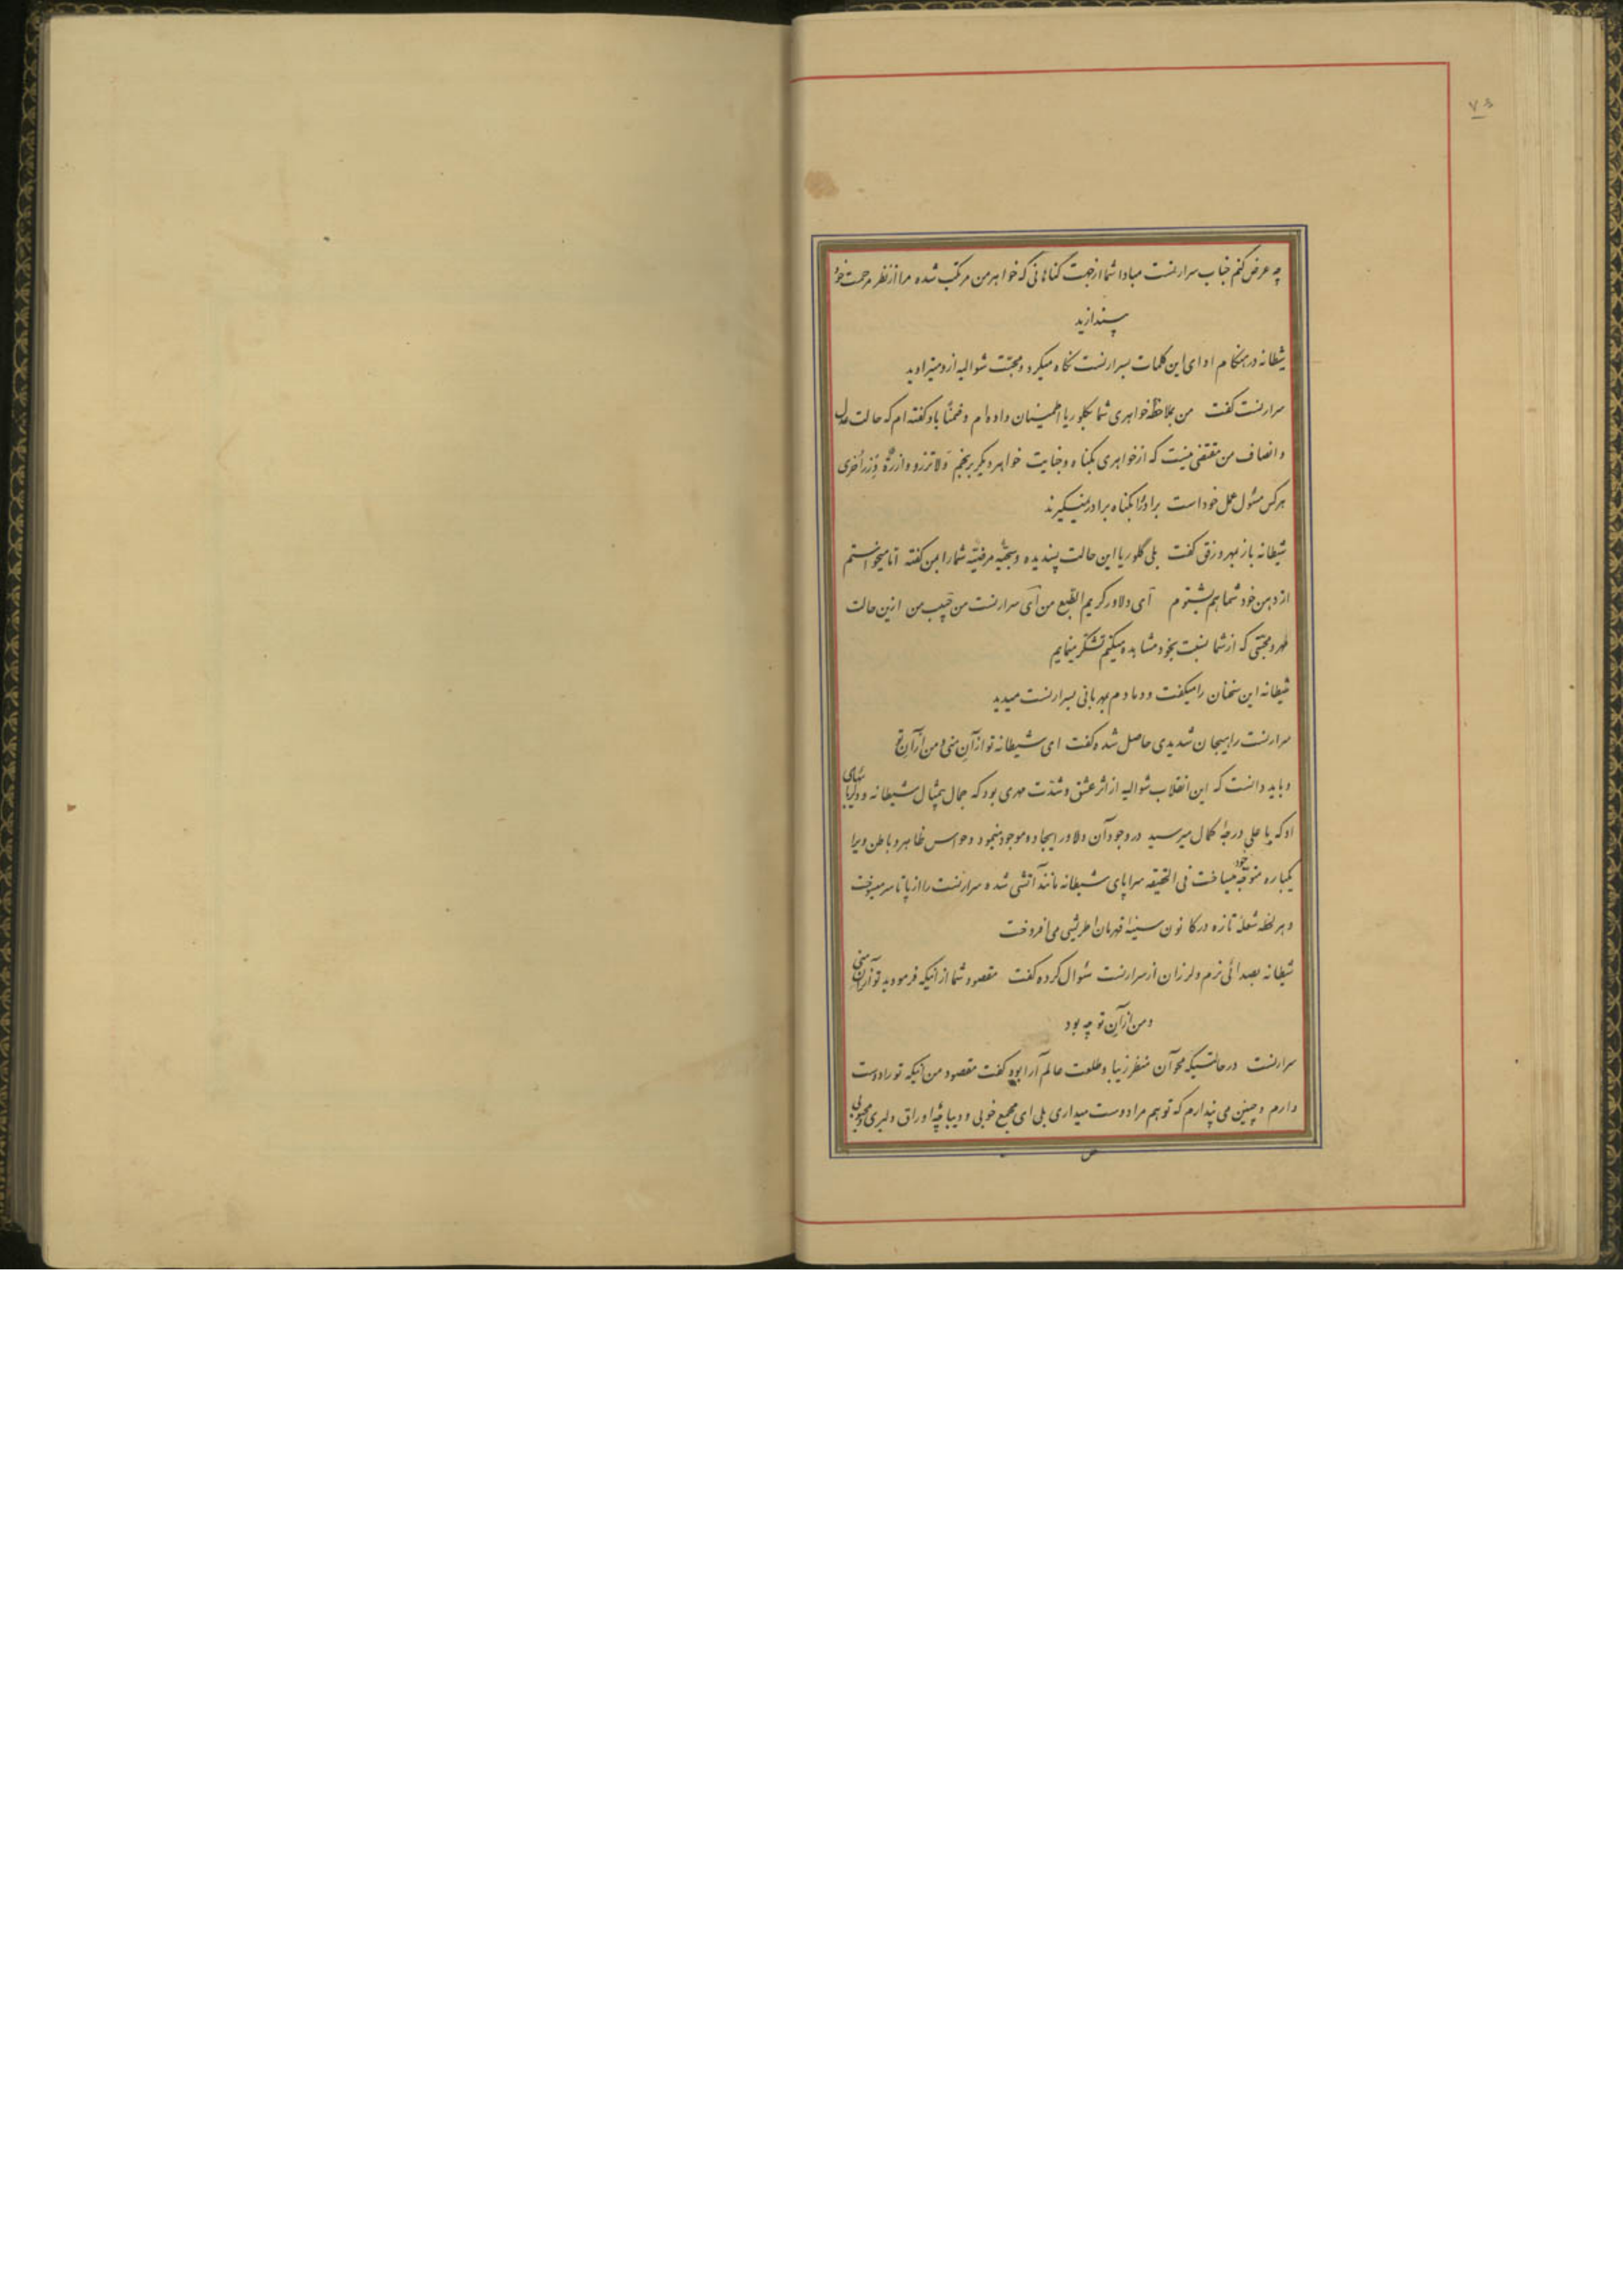 ۷۵
چه عرض کنم جناب سرارنست مبادا شما از جهت گناهانی که خواهر من مرتکب شده مرا از نظر مرحمت خود
بیندازید
شیطانه در هنگام ادای این کلمات بسرارنست نگاه میکرد و محبت شوالیه ازو میتراوید
سرارنست گفت من بملاحظه خواهری شما بگلوریا اطمینان داده‌ام و ضمناً باو گفته‌ام که حالت عدل
و انصاف من مقتضی نیست که از خواهری بگناه و جنایت خواهر دیگر برنجم وَلا تَزِرو وازِرَةٌ وِزرَ اُخری
هرکس مسئول عمل خود است برادر را بگناه برادر نمیگیرند
شیطانه باز بمهر و رفق گفت بلی گلوریا این حالت پسندیده و سجیّه مرضیّه شما را بمن گفته اما میخواستم
از دهن خود شما هم بشنوم ای دلاور کریم الطّبع من ای سرارنست من حبیب من ازین حالت
مهر و محبتی که از شما نسبت بخود مشاهده میکنم تشکر مینمایم
شیطانه این سخنان را میگفت و دمادم بمهربانی بسرارنست میدید
سرارنست را هیجان شدیدی حاصل شده گفت ای شیطانه تو از آنِ منی و من از آنِ تو
و باید دانست که این انقلاب شوالیه از اثر عشق و شدّت مهری بود که جمال بیمثال شیطانه و دلرباییهای
او که باعلی درجهٔ کمال میرسید در وجود آن دلاور ایجاد و موجود مینمود و حواس ظاهر و باطن ویرا
یکباره متوجّه خود میساخت فی الحقیقه سراپای شیطانه مانند آتشی شده سرارنست را از پا تا سر میسوخت
و هر لحظه شعلهٔ تازه در کانون سینهٔ قهرمان اطریشی می‌افروخت
شیطانه بصدائی نرم و لرزان از سرارنست سؤال کرده گفت مقصود شما از اینکه فرمودید تو از آن منی
و من از آنِ تو چه بود
سرارنست در حالتیکه محو آن منظر زیبا و طلعت عالم آرا بود گفت مقصود من اینکه تو را دوست
دارم و چنین می‌پندارم که تو هم مرا دوست میداری بلی ای مجمع خوبی و دیباچهٔ اوراق دلبری و محبوبی